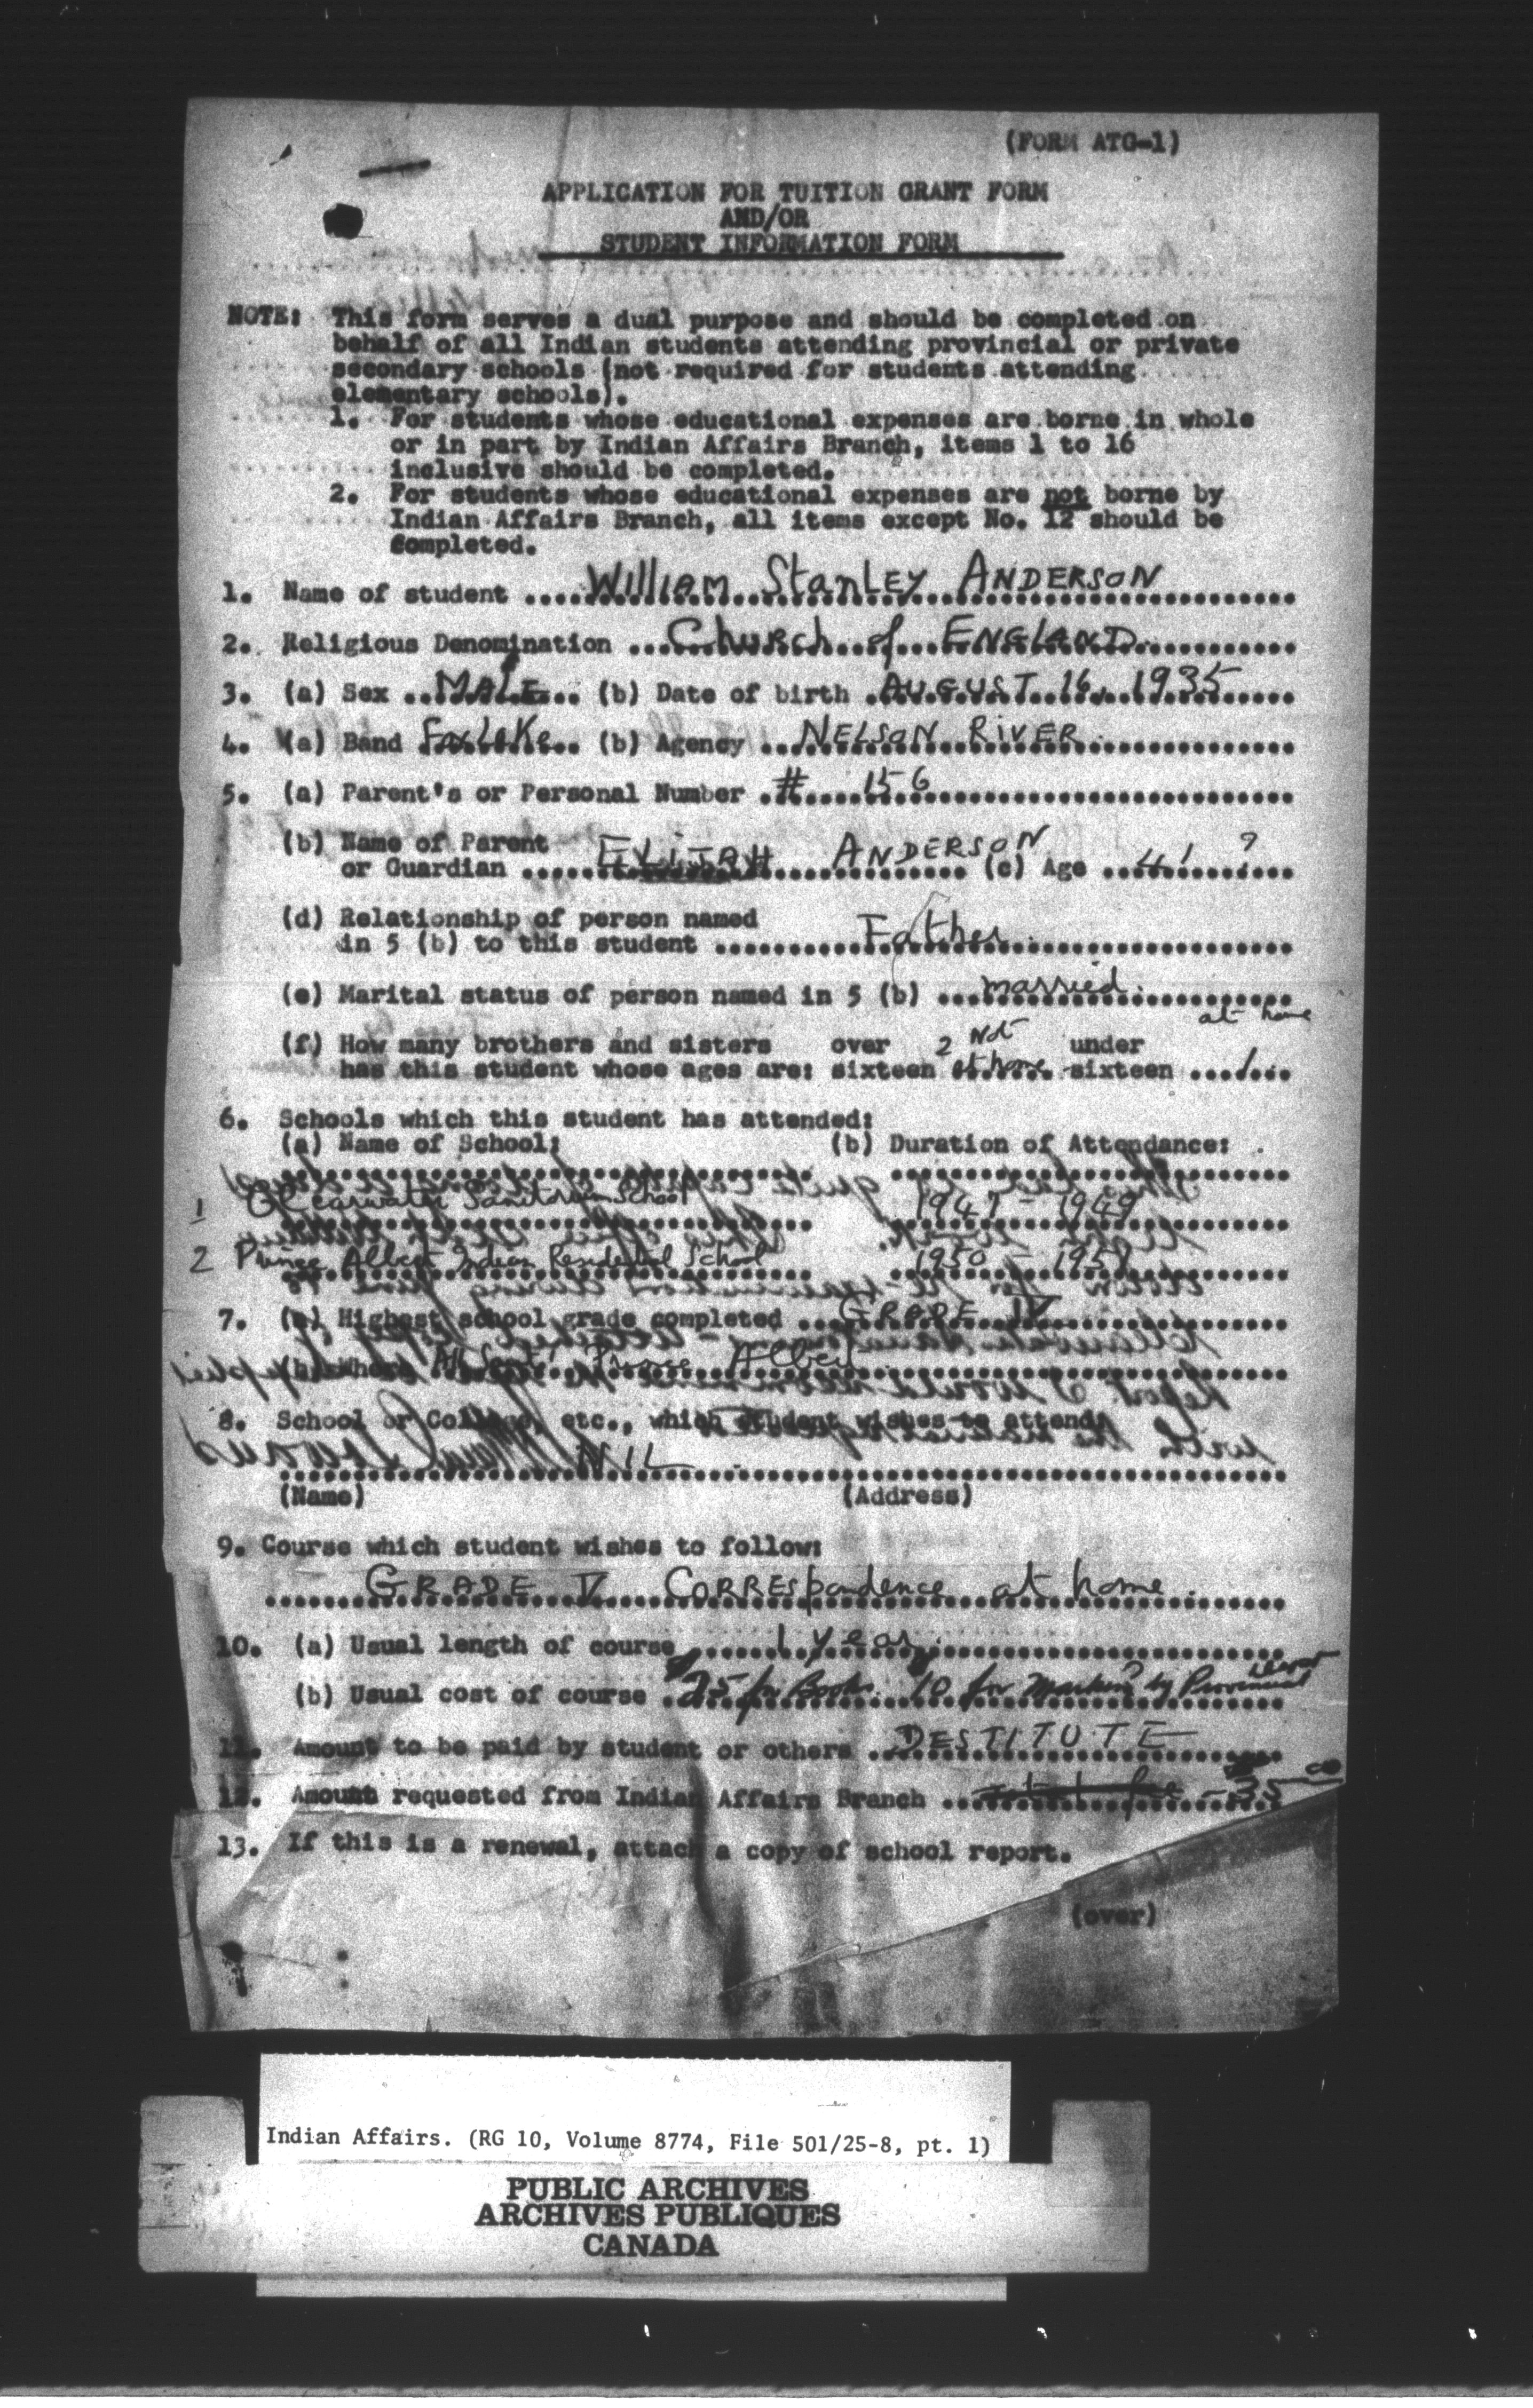 (FORM ATG-1)
APPLICATION FOR TUITION GRANT FORM
AND/OR
STUDENT INFORMATION FORM
NOTE: This form serves a dual purpose and should be completed on
behalf of all Indian students attending provincial or private
secondary schools (not required for students attending
elementary schools).
1. For students whose educational expenses are borne in whole
or in part by Indian Affairs Branch, items 1 to 16
inclusive should be completed.
2. For students whose educational expenses are not borne by
Indian Affairs Branch, all items except No. 12 should be
completed.
1. Name of student William Stanley ANDERSON
2. Religious Denomination Church of ENGLAND
3. (a) Sex MALE (b) Date of birth AUGUST 16, 1935
4. (a) Band Fox Lake (b) Agency NELSON RIVER
5. (a) Parent's or Personal Number # 156
(b) Name of Parent
or Guardian ELIJAH ANDERSON (c) Age 41 ?
(d) Relationship of person named
in 5 (b) to this student Father
(e) Marital status of person named in 5 (b) married.
at home
(f) How many brothers and sisters over 2 Not under
has this student whose ages are: sixteen at home sixteen 1
6. Schools which this student has attended:
(a) Name of School: (b) Duration of Attendance:
1 Clearwater Sanitorium School 1947 - 1949
2 Prince Albert Indian Residential School 1950 - 1951
7. (a) Highest school grade completed GRADE IV
(b) Where Prince Albert
8. School or College, etc., which student wishes to attend:
NIL
(Name) (Address)
9. Course which student wishes to follow:
GRADE V CORRESpondence at home.
10. (a) Usual length of course 1 year.
(b) Usual cost of course $25 for Books. $10 for marking by Provincial
11. Amount to be paid by student or others DESTITUTE
12. Amount requested from Indian Affairs Branch - 35 00
13. If this is a renewal, attach a copy of school report.
(over)
Indian Affairs. (RG 10, Volume 8774, File 501/25-8, pt. 1)
PUBLIC ARCHIVES
ARCHIVES PUBLIQUES
CANADA